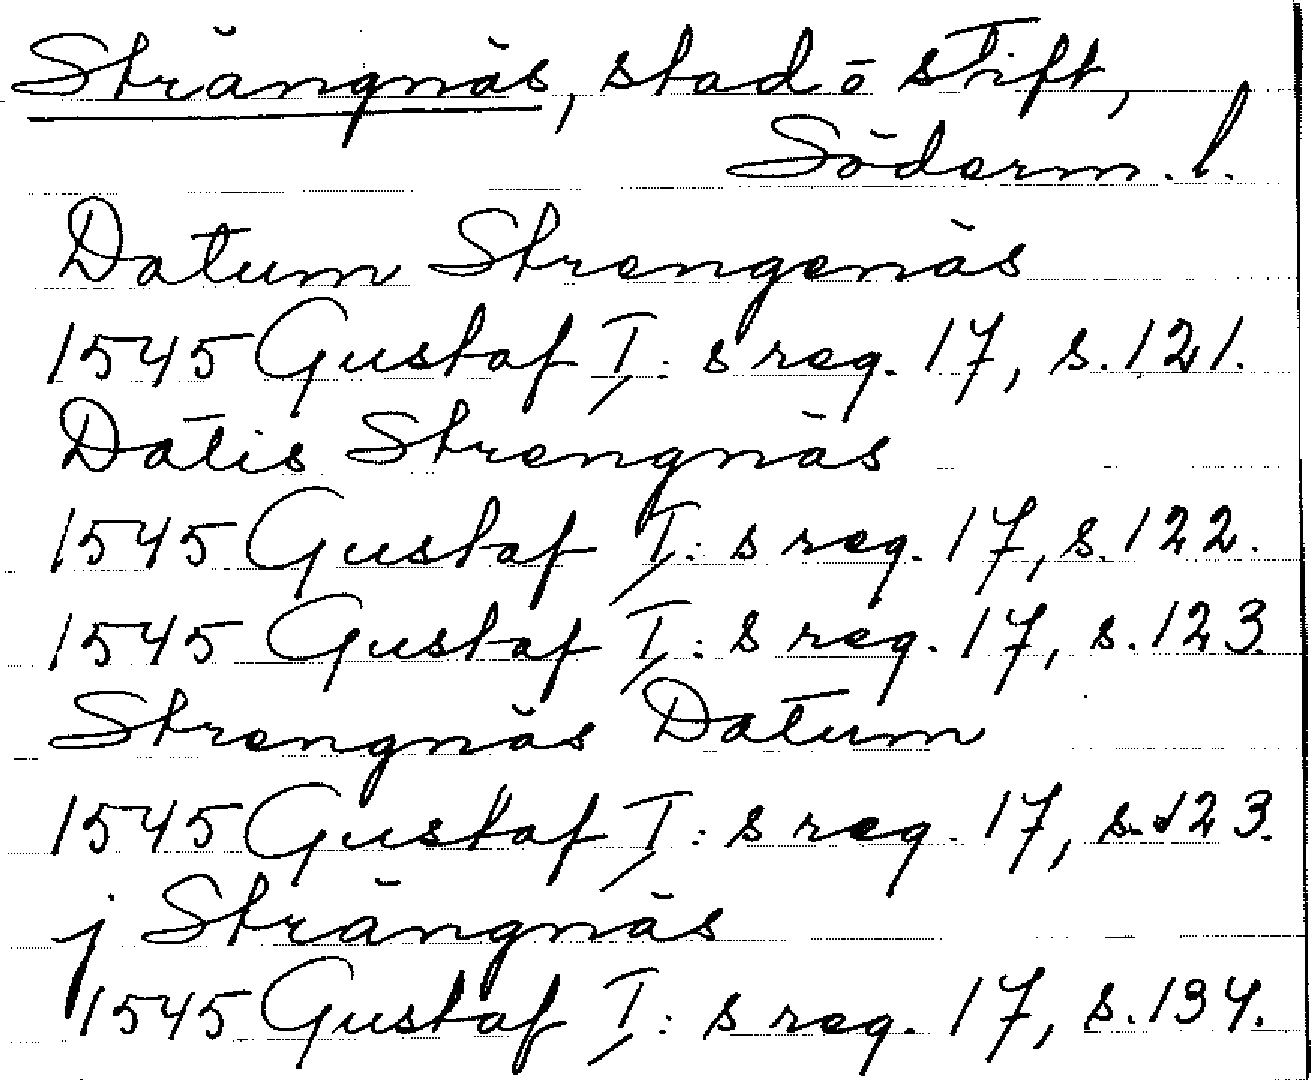 Strängnäs, stad ō stift,
Söderm. l.
Datum Strengenäs
1545 Gustaf I: s reg. 17, s. 121.
Datis Strengnäs
1545 Gustaf I: s reg. 17, s. 122.
1545 Gustaf I: s reg. 17, s. 123.
Strengnäs Datum
1545 Gustaf I: s reg. 17, s. 123.
j Strängnäs
1545 Gustaf I: s reg. 17, s. 134.